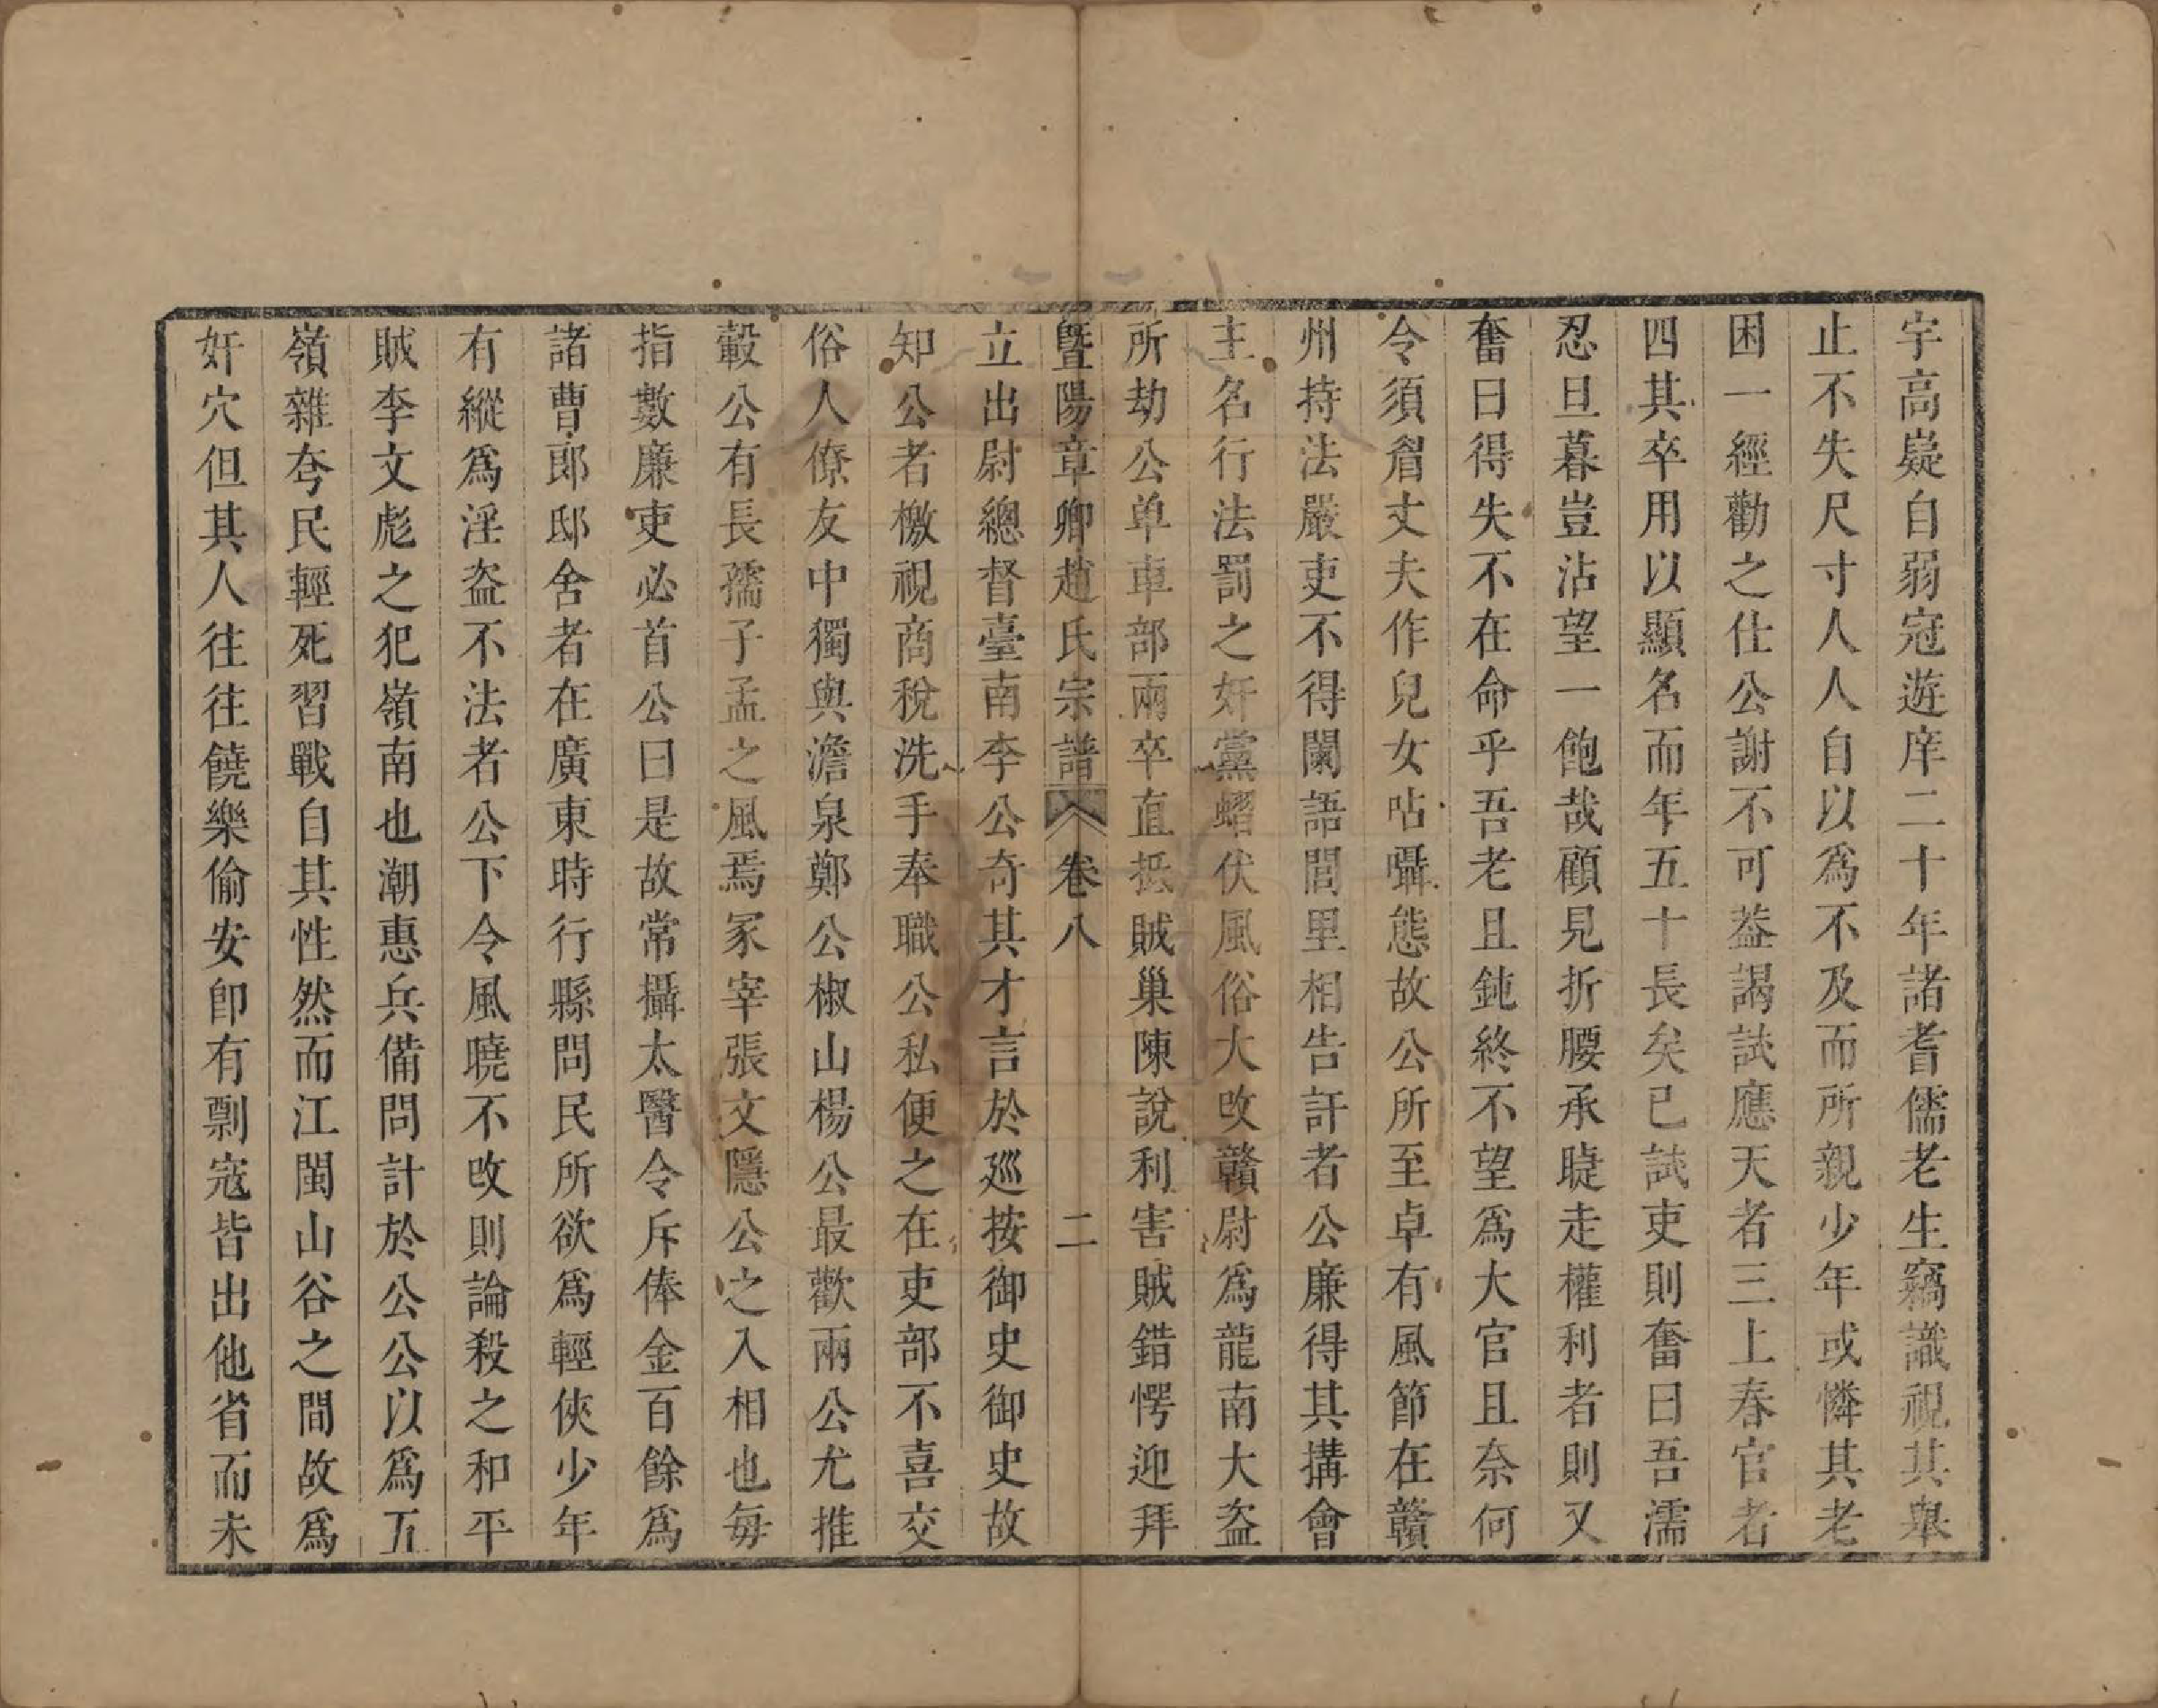 宇高嶷自弱冠遊庠二十年諸耆儒老生竊識視其舉
止不失尺寸人人自以爲不及而所親少年或憐其老
困一經勸之仕公謝不可葢謁試應天者三上春官者
四其卒用以顯名而年五十長矣已試吏則奮曰吾濡
忍旦暮豈沾望一飽哉顧見折腰承睫走權利者則又
奮曰得失不在命乎吾老且鈍終不望爲大官且奈何
令須眉丈夫作兒女呫囁態故公所至卓有風節在贛
州持法嚴吏不得闌語閭里相告訐者公廉得其搆會
主名行法罰之奸黨蟄伏風俗大改贛尉爲龍南大盜
所劫公单車部兩卒直抵賊巢陳說利害賊錯愕迎拜
暨陽章卿趙氏宗譜 卷八 二
立出尉總督臺南李公奇其才言於廵按御史御史故
知公者檄視商稅洗手奉職公私便之在吏部不喜交
俗人僚友中獨與澹泉鄭公椒山楊公最歡兩公尤推
轂公有長孺子孟之風焉冢宰張文隱公之入相也每
指數廉吏必首公曰是故常攝太醫令斥俸金百餘爲
諸曹郎邸舍者在廣東時行縣問民所欲爲輕俠少年
有縱爲淫盜不法者公下令風曉不改則論殺之和平
賊李文彪之犯嶺南也潮惠兵備問計於公公以爲五
嶺雜夸民輕死習戰自其性然而江閩山谷之間故爲
奸穴但其人往往饒樂偷安卽有剽寇皆出他省而未